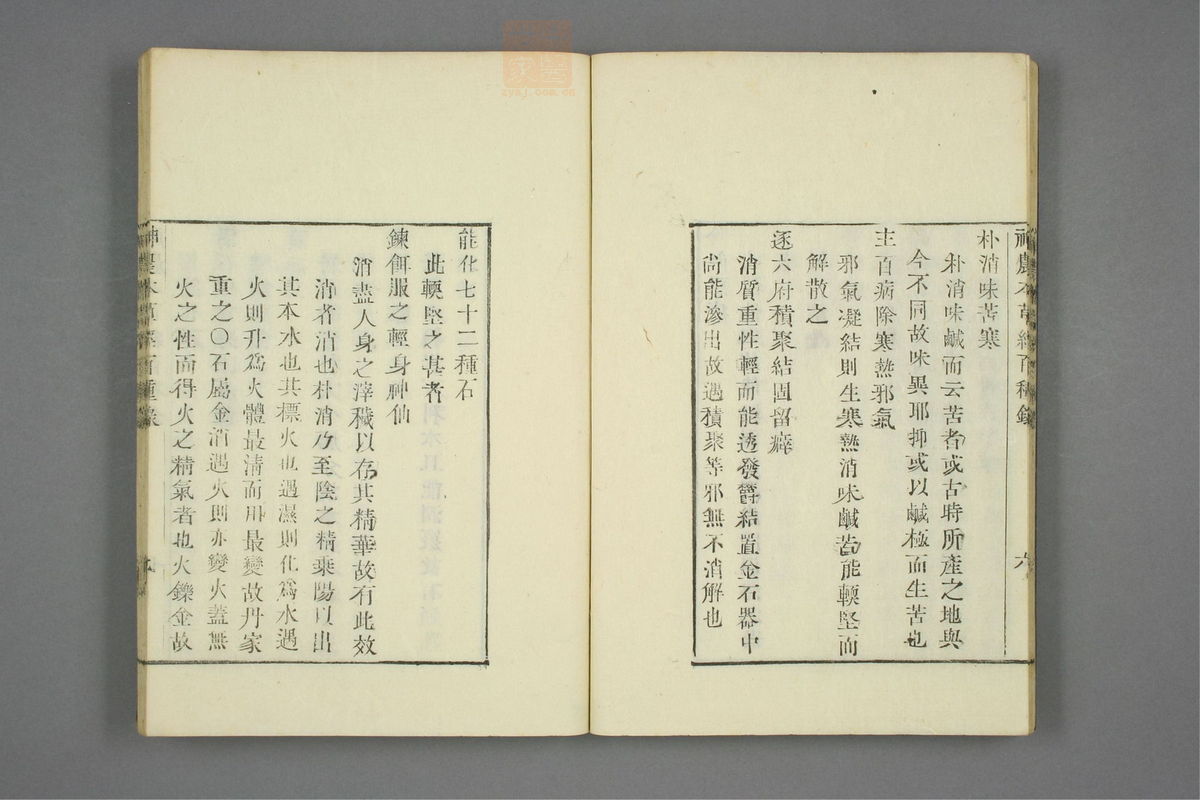 神農本草經百種錄
六
朴消味苦寒
朴消味鹹而云苦者或古時所產之地與
今不同故味異耶抑或以鹹極而生苦也
主百病除寒熱邪氣
邪氣凝結則生寒熱消味鹹苦能輭堅而
解散之
逐六府積聚結固留癖
消質重性輕而能透發鬱結置金石器中
尚能滲出故遇積聚等邪無不消解也
能化七十二種石
此輭堅之甚者
鍊餌服之輕身神仙
消盡人身之滓穢以存其精華故有此效
消者消也朴消乃至陰之精乗陽以出
其本水也其標火也遇濕則化爲水遇
火則升爲火體最清而用最變故丹家
重之〇石屬金消遇火則亦變火蓋無
火之性而得火之精氣者也火鑠金故
神農本草經百種錄
zysj.com.cn